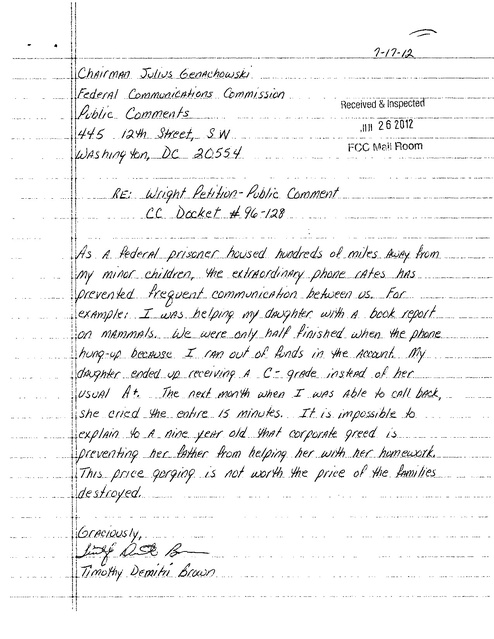 7-17-12
Chairman Julius Genachowski
Federal Communications Commission
Public Comments
445 12th Street, SW
Washington, DC 20554
Received & Inspected
JUL 26 2012
FCC Mail Room
RE: Wright Petition-Public Comment
CC Docket #96-128
As a Federal prisoner housed hundreds of miles away from
my minor children, the extraordinary phone rates has
prevented frequent communication between us. For
example: I was helping my daughter with a book report
on mammals. We were only half finished when the phone
hung-up because I ran out of funds in the account. My
daughter ended up receiving a C- grade instead of her
usual A+. The next month when I was able to call back,
she cried the entire 15 minutes. It is impossible to
explain to a nine year old that corporate greed is
preventing her father from helping her with her homework.
This price gorging is not worth the price of the families
destroyed.
Graciously,
Timothy Demitri Brown